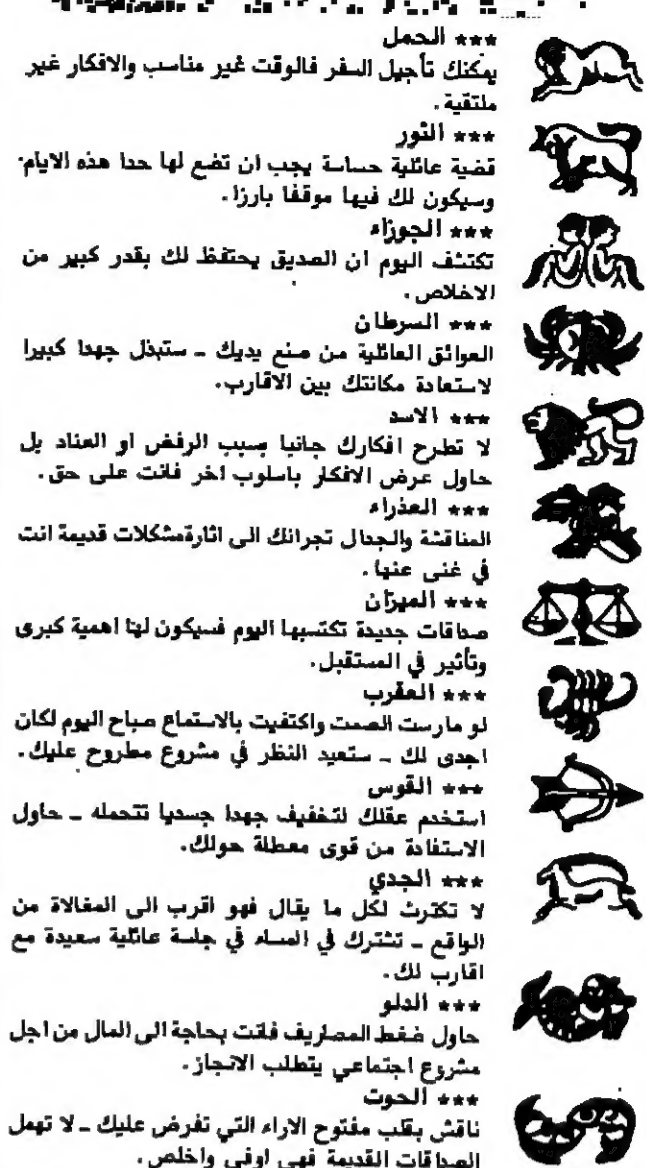 *** الحمل
يمكنك تأجيل السفر فالوقت غير مناسب والافكار غير
ملتقية .
*** الثور
قضية عائلية حساسة يجب ان تضع لها حدا هذه الايام
وسيكون لك فيها موقفا بارزا .
*** الجوزاء
تكتشف اليوم ان الصديق يحتفظ لك بقدر كبير من
الاخلاص .
*** السرطان
العوائق العائلية من صنع يديك ـ ستبذل جهدا كبيرا
لاستعادة مكانتك بين الاقارب .
*** الاسد
لا تطرح افكارك جانبا بسبب الرفض او العناد بل
حاول عرض الافكار باسلوب اخر فانت على حق .
*** العذراء
المناقشة والجدال تجرانك الى اثارةمشكلات قديمة انت
في غنى عنها .
*** الميزان
صداقات جديدة تكتسبها اليوم فسيكون لها اهمية كبرى
وتأثير في المستقبل .
*** العقرب
لو مارست الصمت واكتفيت بالاستماع صباح اليوم لكان
اجدى لك ـ ستعيد النظر في مشروع مطروح عليك .
*** القوس
استخدم عقلك لتخفيف جهدا جسديا تتحمله ـ حاول
الاستفادة من قوى معطلة حولك .
*** الجدي
لا تكترث لكل ما يقال فهو اقرب الى المغالاة من
الواقع ـ تشترك في المساء في جلسة عائلية سعيدة مع
اقارب لك .
*** الدلو
حاول ضغط المصاريف فانت بحاجة الى المال من اجل
مشروع اجتماعي يتطلب الانجاز .
*** الحوت
ناقش بقلب مفتوح الاراء التي تفرض عليك ـ لا تهمل
الصداقات القديمة فهي اوفى واخلص .